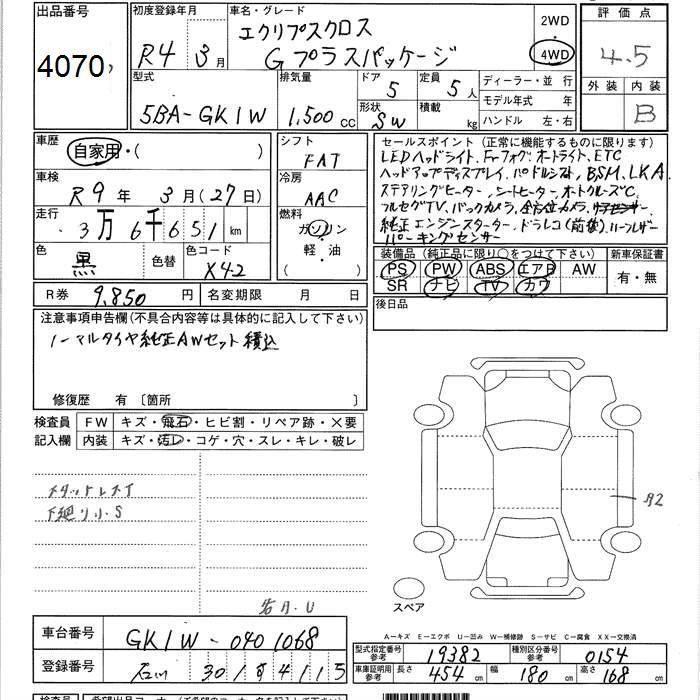 出品番号
4070
初度登録年月
R4年3月
車名・グレード
エクリプスクロス
Gプラスパッケージ
2WD
4WD
評価点
4.5
外装 内装
B
型式
5BA-GK1W
排気量
1,500 CC
ドア
5
定員
5人
形状
SW
積載
kg
ディーラー・並行
モデル年式 年
ハンドル 左・右
車歴
自家用・( )
シフト
FAT
車検
R9年3月(27日)
冷房
AAC
走行
3万6千651km
燃料
ガソリン
軽・油
( )
色
黒
色替
色コード
X42
R券 9,850円
名変期限 月 日
セールスポイント(正常に機能するものに限ります)
LEDヘッドライト、Frフォグ、オートライト、ETC
ヘッドアップディスプレイ、パドルシフト、BSM、LKA
ステアリングヒーター、シートヒーター、オートクルーズC
フルセグTV、バックカメラ、全方位カメラ
純正エンジンスターター、ドラレコ(前後)、ハーフレザー
パーキングセンサー
装備品(純正品に限り○をつけて下さい)
PS PW ABS エアB AW
SR ナビ TV カワ
新車保証書
有・無
後日品
注意事項申告欄(不具合内容等は具体的に記入して下さい)
ノーマルタイヤ純正AWセット積込
修復歴 有〔箇所 〕
検査員
記入欄
FW キズ・飛石・ヒビ割・リペア跡・×要
内装 キズ・汚レ・コゲ・穴・スレ・キレ・破レ
スタッドレス
下廻り小S
A2
スペア
A-キズ E-エクボ U-凹み W-補修跡 S-サビ C-腐食 XX-交換済
車台番号
GK1W-0401068
登録番号
石川 30
型式指定番号
参考
19382
種別区分番号
参考
0154
車庫証明用
参考
長さ 454cm
幅 180cm
高さ 168cm